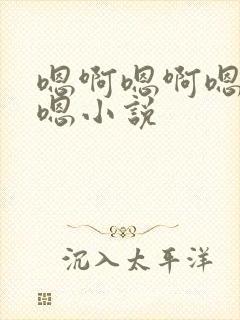 嗯啊嗯啊嗯
嗯小説
沉入太平洋